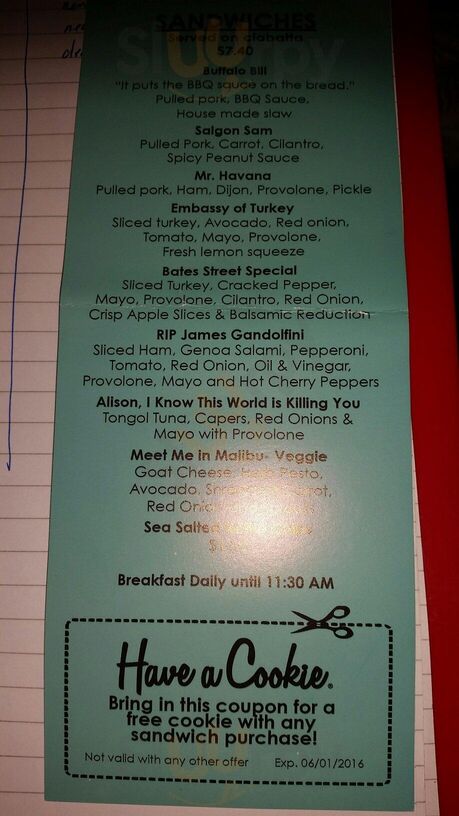 SANDWICHES
Served on ciabatta
$7.40
Buffalo Bill
"It puts the BBQ sauce on the bread."
Pulled pork, BBQ Sauce,
House made slaw
Saigon Sam
Pulled Pork, Carrot, Cilantro,
Spicy Peanut Sauce
Mr. Havana
Pulled pork, Ham, Dijon, Provolone, Pickle
Embassy of Turkey
Sliced turkey, Avocado, Red onion,
Tomato, Mayo, Provolone,
Fresh lemon squeeze
Bates Street Special
Sliced Turkey, Cracked Pepper,
Mayo, Provolone, Cilantro, Red Onion,
Crisp Apple Slices & Balsamic Reduction
RIP James Gandolfini
Sliced Ham, Genoa Salami, Pepperoni,
Tomato, Red Onion, Oil & Vinegar,
Provolone, Mayo and Hot Cherry Peppers
Alison, I Know This World is Killing You
Tongol Tuna, Capers, Red Onions &
Mayo with Provolone
Meet Me in Malibu- Veggie
Goat Cheese, Pesto,
Avocado,
Red
Sea Salted
Breakfast Daily until 11:30 AM
Have a Cookie.
Bring in this coupon for a
free cookie with any
sandwich purchase!
Not valid with any other offer Exp. 06/01/2016